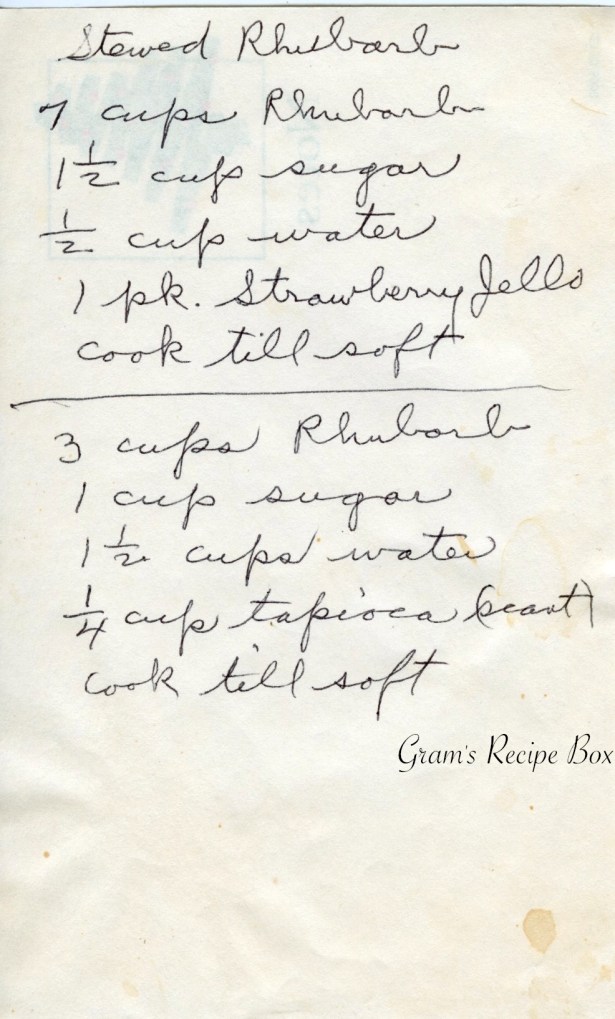 Stewed Rhubarb
7 cups Rhubarb
1 1/2 cup sugar
1/2 cup water
1 pk. Strawberry Jello
cook till soft
3 cups Rhubarb
1 cup sugar
1 1/2 cups water
1/4 cup tapioca (scant)
cook till soft
Gram's Recipe Box